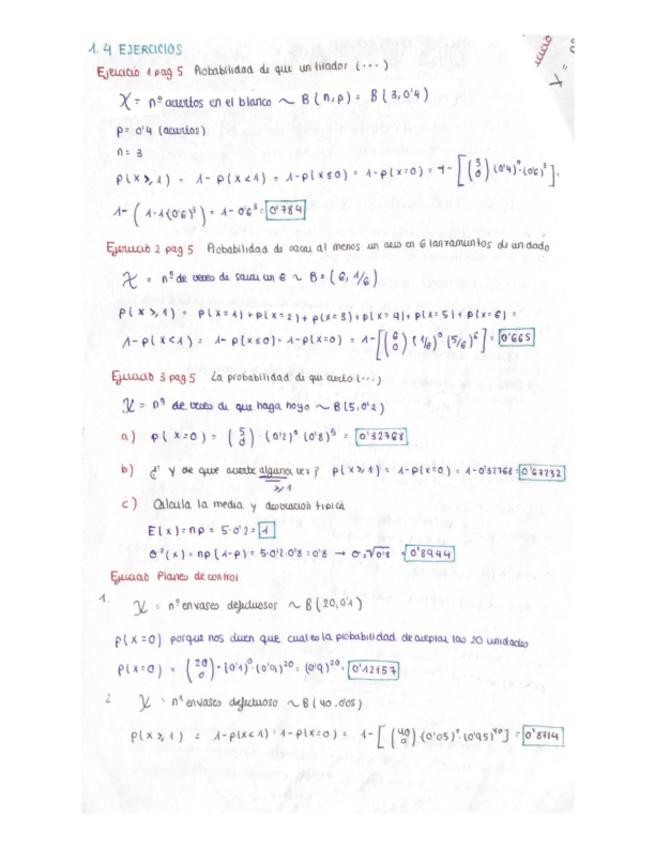 1.4 EJERCICIOS
Ejercicio 1 pag 5 Probabilidad de que un tirador (...)
X = nº aciertos en el blanco ~ B(n,p) = B(3,0'4)
p= 0'4 (aciertos)
n= 3
P(X≥1) = 1-P(X<1) = 1-P(X≤0) = 1-P(X=0) = 1-[(3 0)(0'4)⁰·(0'6)³]=
1-(1·1·(0'6)³) = 1-0'6³ = 0'784
Ejercicio 2 pag 5 Probabilidad de sacar al menos un seis en 6 lanzamientos de un dado
X = nº de veces de sacar un 6 ~ B=(6,1/6)
P(X≥1) = P(X=1)+P(X=2)+P(X=3)+P(X=4)+P(X=5)+P(X=6) =
1-P(X<1) = 1-P(X≤0) = 1-P(X=0) = 1-[(6 0)(1/6)⁰(5/6)⁶] = 0'665
Ejercicio 3 pag 5 La probabilidad de que cierto (...)
X = nº de veces de que haga hoyo ~ B(5,0'2)
a) P(X=0) = (5 0)·(0'2)⁰(0'8)⁵ = 0'32768
b) ¿ Y de que acierte alguna vez? P(X≥1) = 1-P(X=0) = 1-0'32768 = 0'67232
≥1
c) Calcula la media y desviacion tipica
E(X)=np = 5·0'2 = 1
σ²(X) = np(1-p) = 5·0'2·0'8 = 0'8 → σ=√0'8 = 0'8944
Ejercicio Planes de control
1. X = nº envases defectuosos ~ B(20,0'1)
P(X=0) porque nos dicen que cual es la probabilidad de aceptar las 20 unidades
P(X=0) = (20 0)·(0'1)⁰·(0'9)²⁰ = (0'9)²⁰ = 0'12157
2 X = nº envases defectuoso ~ B(40,0'05)
P(X≥1) = 1-P(X<1) = 1-P(X=0) = 1-[(40 0)(0'05)⁰·(0'95)⁴⁰] = 0'8714